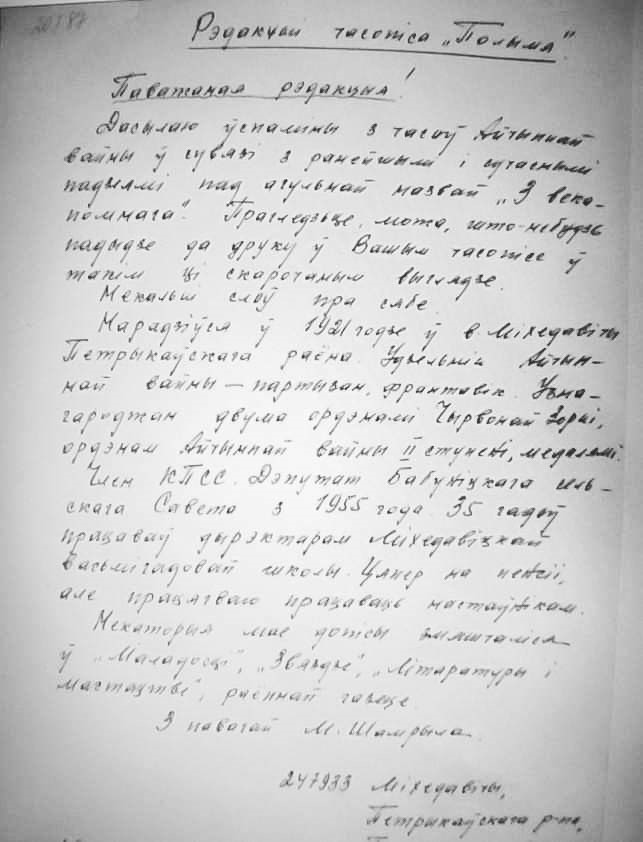 Рэдакцыі часопіса „Полымя".
Паважаная рэдакцыя!
Дасылаю ўспаміны з часоў Айчыннай
вайны ў сувязі з ранейшымі і сучаснымі
падзеямі пад агульнай назвай „З века-
помнага". Праглядзьце, можа, што-небудзь
падыдзе да друку ў Вашым часопісе ў
такім ці скарочаным выглядзе.
Некалькі слоў пра сябе.
Нарадзіўся ў 1921 годзе ў в. Міхедавічы
Петрыкаўскага раёна. Удзельнік Айчын-
най вайны — партызан, франтавік. Узна-
гароджан двума ордэнамі Чырвонай Зоркі,
ордэнам Айчыннай вайны II ступені, медалямі.
Член КПСС. Дэпутат Бабуніцкага сель-
скага Савета з 1955 года. 35 гадоў
працаваў дырэктарам Міхедавіцкай
васьмігадовай школы. Цяпер на пенсіі,
але працягваю працаваць настаўнікам.
Некаторыя мае допісы змяшчаліся
ў „Маладосці", „Звяздзе", „Літаратуры і
мастацтве", раённай газеце.
З павагай М. Шамрыла.
247933 Міхедавічы,
Петрыкаўскага р-на,